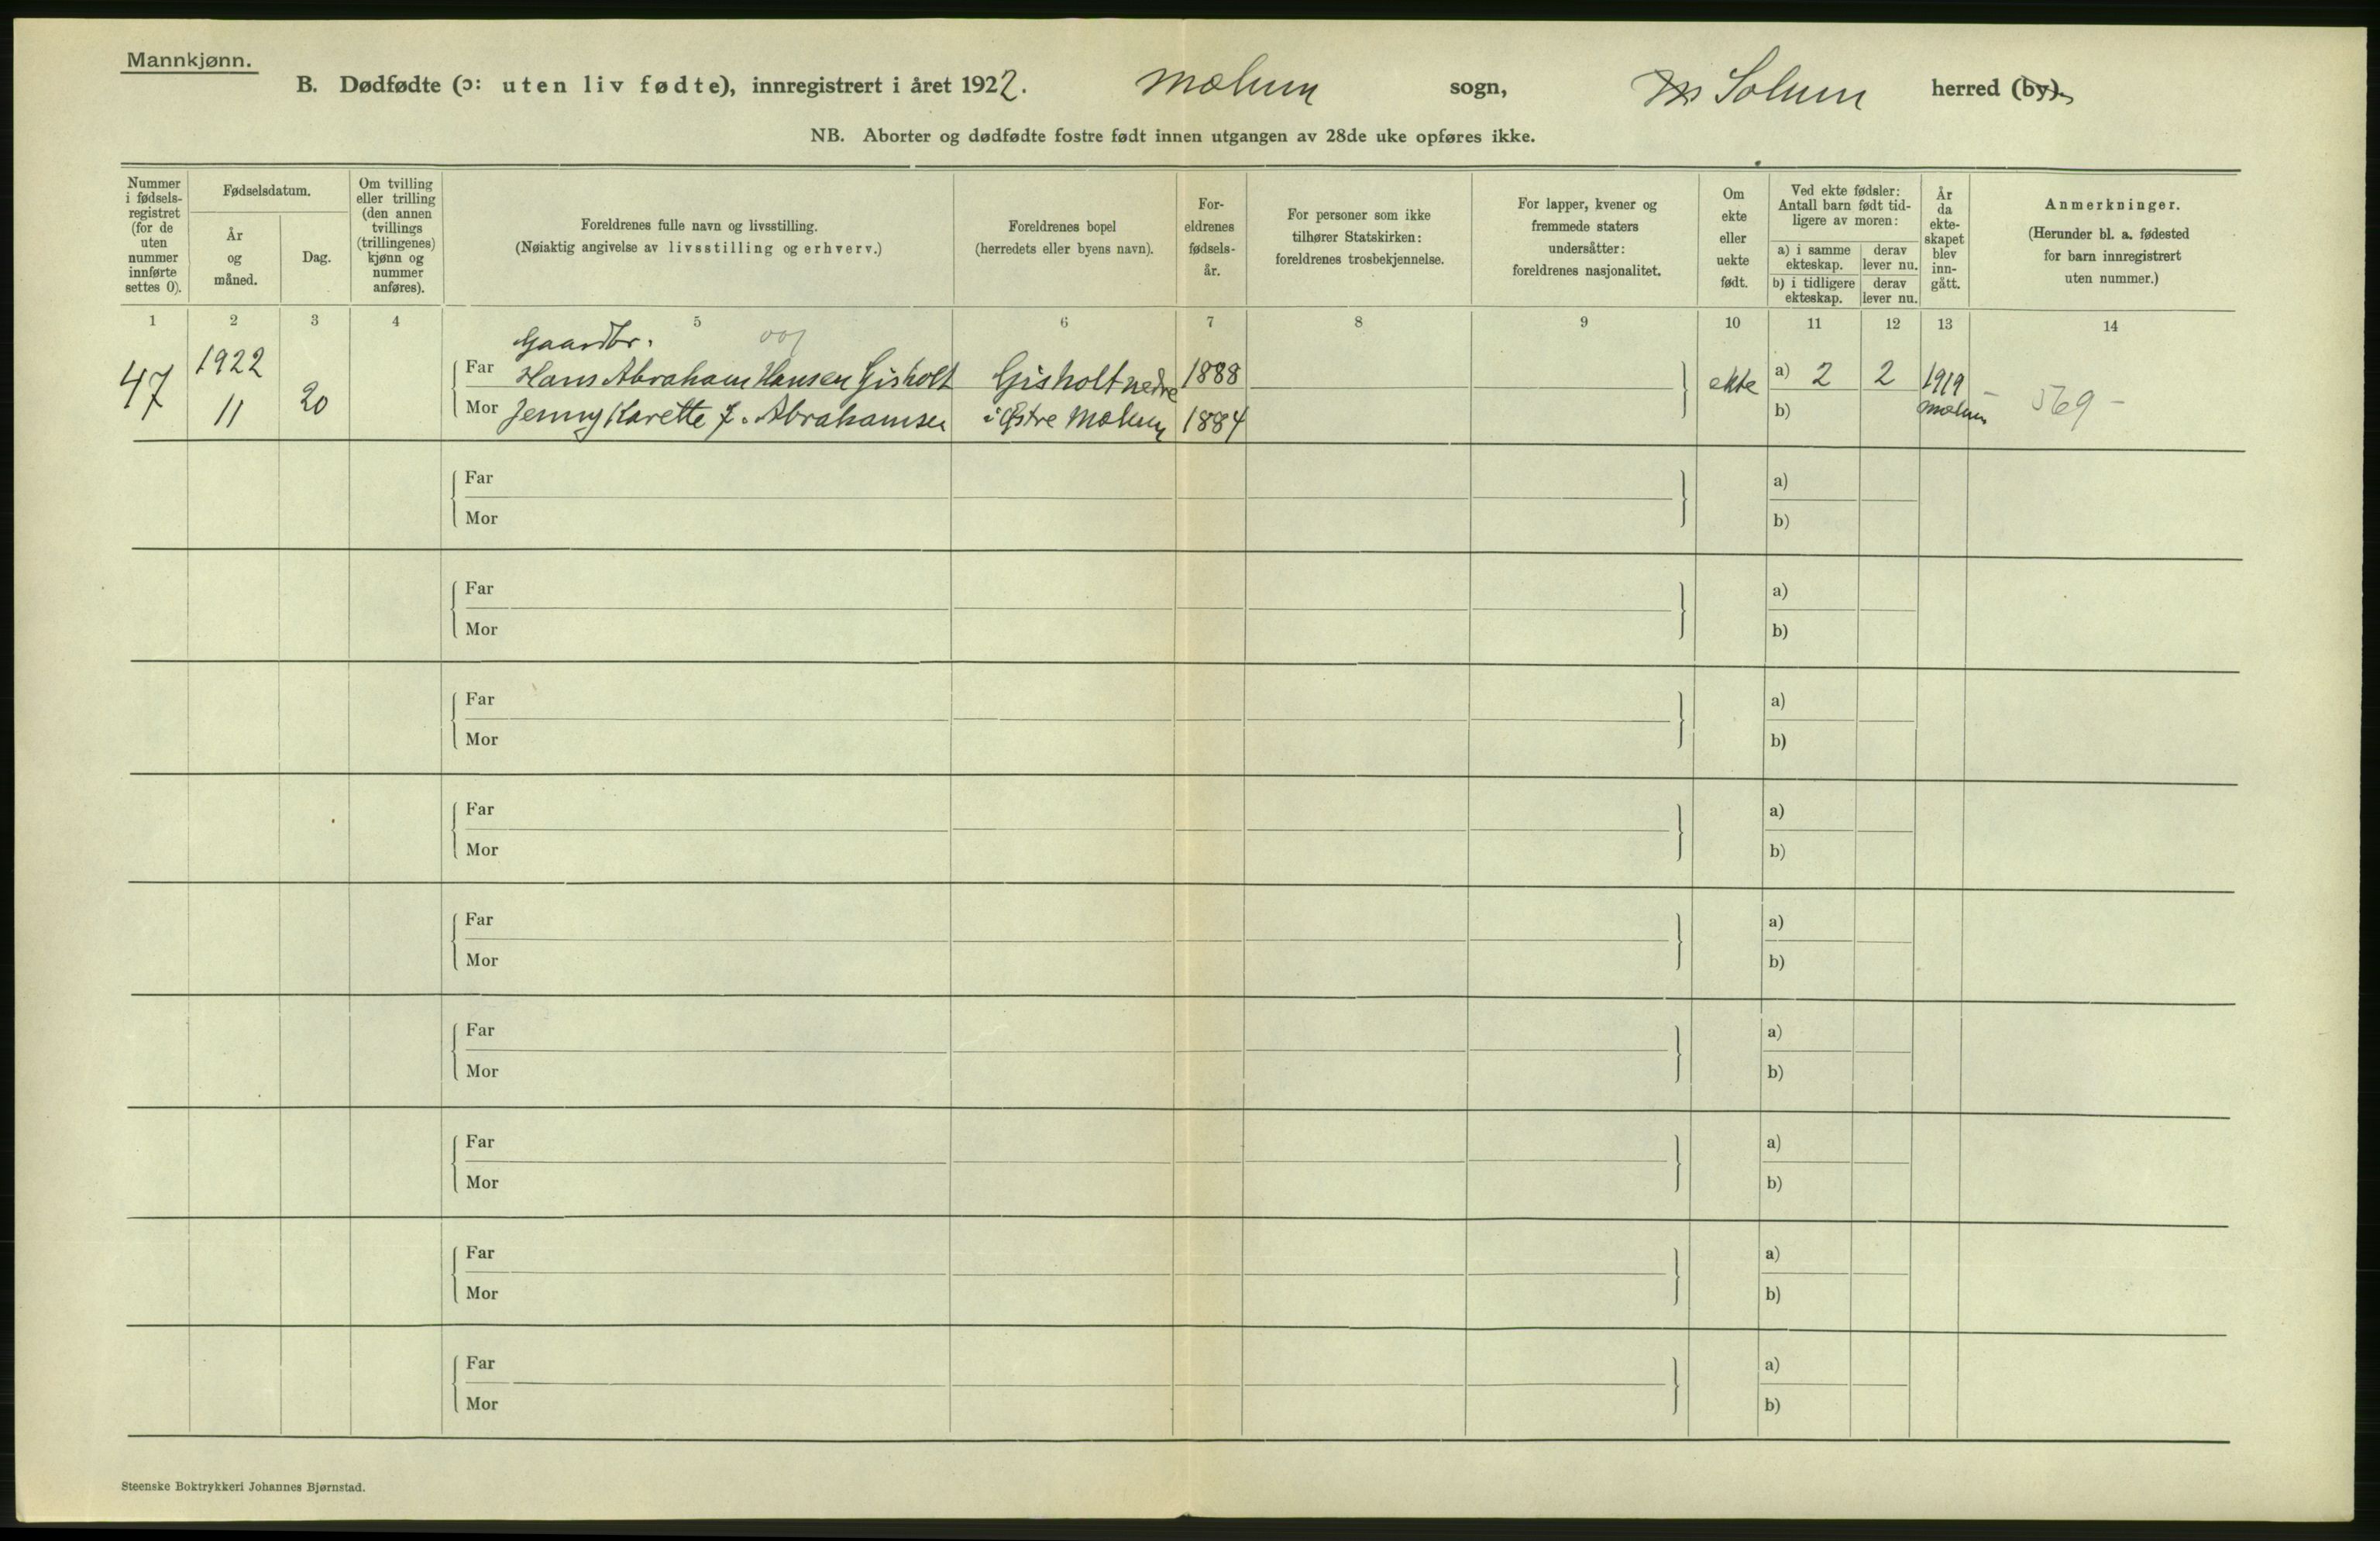 Mannkjønn.
B. Dødfødte (ɔ: uten liv fødte), innregistrert i året 1922. Mælum sogn, Solum herred (by).
NB. Aborter og dødfødte fostre født innen utgangen av 28de uke opføres ikke.
Nummer i fødsels-registret (for de uten nummer innførte settes 0).
Fødselsdatum.
År og måned.
Dag.
Om tvilling eller trilling (den annen tvillings (trillingenes) kjønn og nummer anføres).
Foreldrenes fulle navn og livsstilling.
(Nøiaktig angivelse av livsstilling og erhverv.)
Foreldrenes bopel
(herredets eller byens navn).
For-eldrenes fødsels-år.
For personer som ikke tilhører Statskirken: foreldrenes trosbekjennelse.
For lapper, kvener og fremmede staters undersåtter: foreldrenes nasjonalitet.
Om ekte eller uekte født.
Ved ekte fødsler: Antall barn født tid-ligere av moren:
a) i samme ekteskap.
derav lever nu.
b) i tidligere ekteskap.
derav lever nu.
År da ekte-skapet blev inn-gått.
Anmerkninger.
(Herunder bl. a. fødested for barn innregistrert uten nummer.)
1 2 3 4 5 6 7 8 9 10 11 12 13 14
Gaardbr.
47 1922 Far Hans Abraham Hansen Gisholt Gisholt nedre 1888 ekte a) 2 2 1919
11 20 Mor Jenny Karette f. Abrahamsen i Østre Mælum 1884 b) Mælum 569 -
Far a)
Mor b)
Far a)
Mor b)
Far a)
Mor b)
Far a)
Mor b)
Far a)
Mor b)
Far a)
Mor b)
Far a)
Mor b)
Far a)
Mor b)
Far a)
Mor b)
Steenske Boktrykkeri Johannes Bjørnstad.